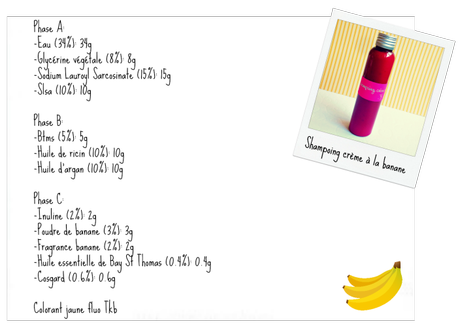 Phase A:
-Eau (34%): 34g
-Glycérine végétale (8%): 8g
-Sodium Lauroyl Sarcosinate (15%): 15g
-Slsa (10%): 10g
Phase B:
-Btms (5%): 5g
-Huile de ricin (10%): 10g
-Huile d'argan (10%): 10g
Phase C:
-Inuline (2%): 2g
-Poudre de banane (3%): 3g
-Fragrance banane (2%): 2g
-Huile essentielle de Bay St Thomas (0.4%): 0.4g
-Cosgard (0.6%): 0.6g
Colorant jaune fluo Tkb
Shampoing crème à la banane